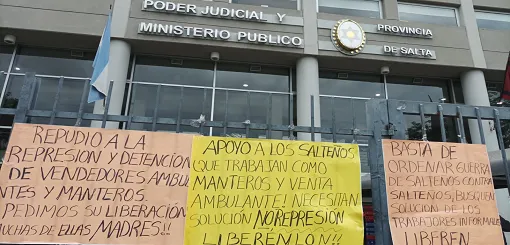 PODER JUDICIAL Y
MINISTERIO PUBLICO
PROVINCIA
DE SALTA
REPUDIO A LA
REPRESION Y DETENCION
DE VENDEDORES AMBUL
NTES Y MANTEROS.
PEDIMOS SU LIBERACIÓN
UCHAS DE ELLAS MADRES!!
APOYO A LOS SALTEÑOS
QUE TRABAJAN COMO
MANTEROS Y VENTA
AMBULANTE! NECESITAN
SOLUCIÓN NO REPRESIÓN
LIBERÉNLON!!
BASTA DE
ORDENAR GUERRA
DE SALTEÑOS CONTRA
SALTEÑOS, BUSQUEN
SOLUCION DE LOS
TRABAJORES INFORMALE
LIBEREN